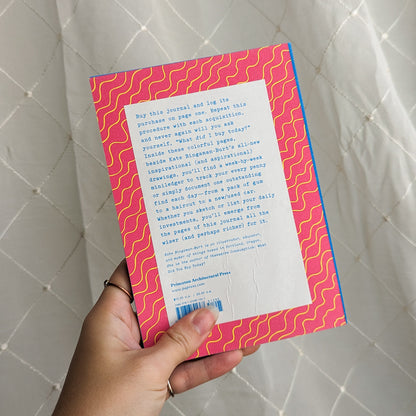 Buy this journal and log its
purchase on page one. Repeat this
procedure with each acquisition,
and never again will you ask
yourself, "What did I buy today?"
Inside these colorful pages,
beside Kate Bingaman-Burt's all-new
inspirational (and aspirational)
drawings, you'll find a week-by-week
miniledger to track your every penny
or simply document one outstanding
find each day—from a pack of gum
to a haircut to a new/used car.
Whether you sketch or list your daily
investments, you'll emerge from
the pages of this journal all the
wiser (and perhaps richer) for it.
Kate Bingaman-Burt is an illustrator, educator,
and maker of things based in Portland, Oregon.
She is the author of Obsessive Consumption: What
Did You Buy Today?
Princeton Architectural Press
www.papress.com